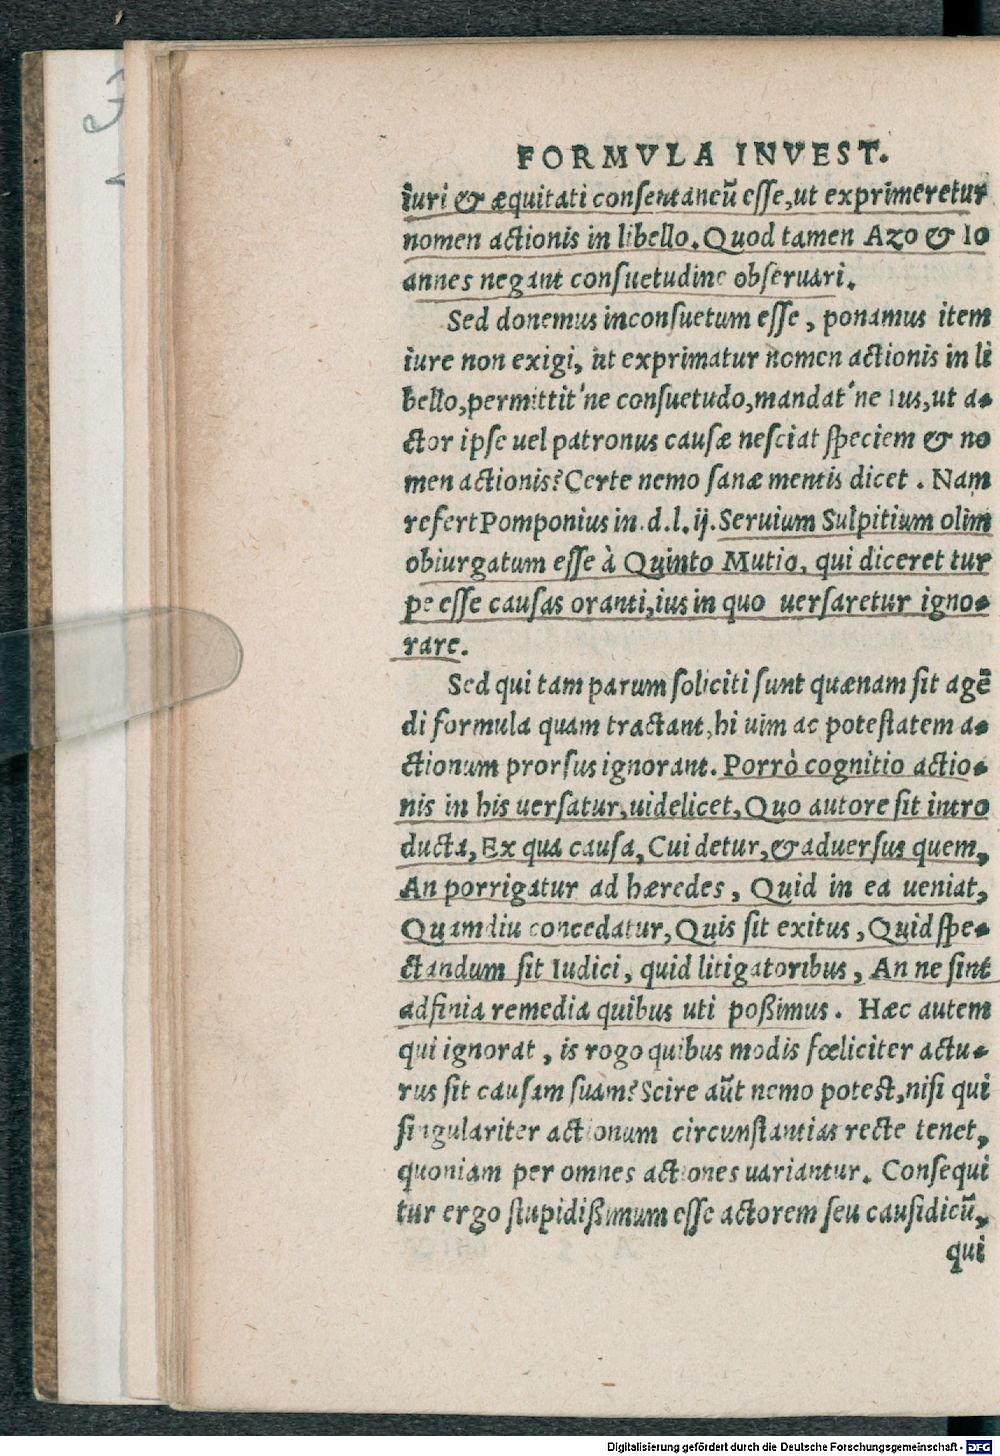 FORMVLA INVEST.
iuri & æquitati consentaneũ esse, ut exprimeretur
nomen actionis in libello. Quod tamen Azo & Io
annes negant consuetudine obseruari.
Sed donemus inconsuetum esse, ponamus item
iure non exigi, ut exprimatur nomen actionis in li
bello, permittit'ne consuetudo, mandat'ne Ius, ut a-
ctor ipse uel patronus causæ nesciat speciem & no
men actionis? Certe nemo sanæ mentis dicet. Nam
refert Pomponius in.d.l.ij. Seruium Sulpitium olim
obiurgatum esse à Quinto Mutio, qui diceret tur
pe esse causas oranti, ius in quo uersaretur igno-
rare.
Sed qui tam parum soliciti sunt quænam sit agẽ
di formula quam tractant, hi uim ac potestatem a-
ctionum prorsus ignorant. Porrò cognitio actio-
nis in his uersatur, uidelicet, Quo autore sit intro
ducta, Ex qua causa, Cui detur, & aduersus quem,
An porrigatur ad hæredes, Quid in ea ueniat,
Quamdiu concedatur, Quis sit exitus, Quid spe-
ctandum sit Iudici, quid litigatoribus, An ne sint
adfinia remedia quibus uti poßimus. Hæc autem
qui ignorat, is rogo quibus modis fœliciter actu-
rus sit causam suam? Scire aũt nemo potest, nisi qui
singulariter actionum circunstantias recte tenet,
quoniam per omnes actiones uariantur. Consequi
tur ergo stupidißimum esse actorem seu causidicũ,
qui
Digitalisierung gefördert durch die Deutsche Forschungsgemeinschaft - DFG